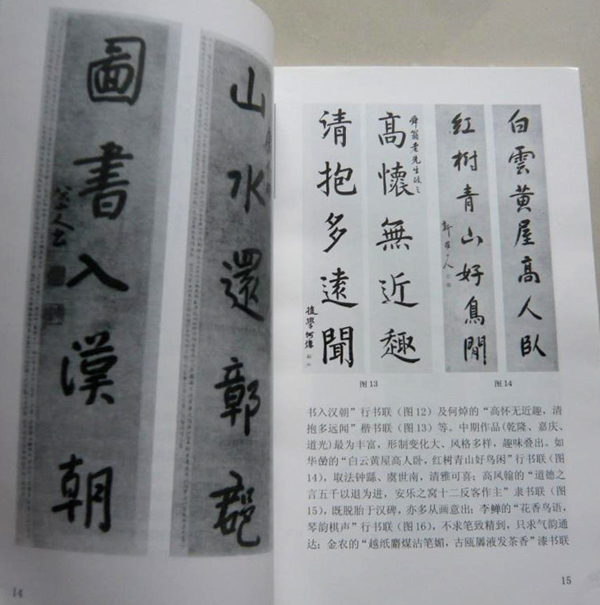 山水還鄣郡
圖書入漢朝
14
白雲黄屋高人臥
紅樹青山好鳥閒
高懷無近趣
清抱多遠聞
後學何焯
图13
图14
书入汉朝”行书联(图12)及何焯的“高怀无近趣，清
抱多远闻”楷书联(图13)等。中期作品(乾隆、嘉庆、
道光)最为丰富，形制变化大、风格多样，趣味叠出。如
华嵒的“白云黄屋高人卧，红树青山好鸟闲”行书联(图
14)，取法钟繇、虞世南，清雅可喜；高凤翰的“道德之
言五千以退为进，安乐之窝十二反客作主”隶书联(图
15)，既脱胎于汉碑，亦多从画意出；李鱓的“花香鸟语，
琴韵棋声”行书联(图16)，不求笔致精到，只求气韵通
达；金农的“越纸麝煤沾笔媚，古瓯犀液发茶香”漆书联
15